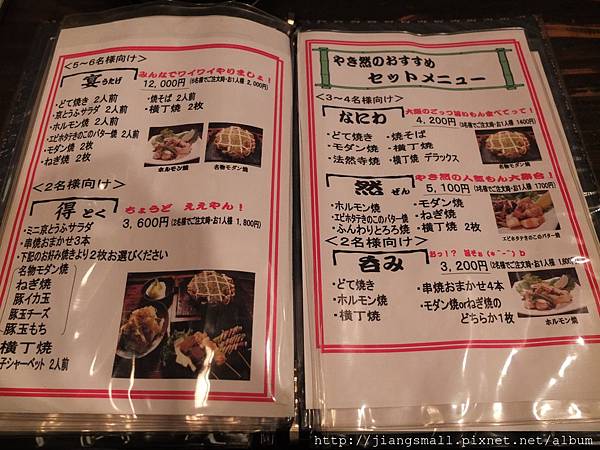 <5〜6名様向け>
宴 うたげ
みんなでワイワイやりましょ!
12,000円 (6名様でご注文時・お1人様 2,000円)
・どて焼き 2人前
・京とうふサラダ 2人前
・ホルモン焼 2人前
・エビホタテきのこのバター焼 2人前
・モダン焼 2枚
・ねぎ焼 2枚
・焼そば 2人前
・横丁焼 2枚
ホルモン焼
名物モダン焼
<2名様向け>
得 とく
ちょうど ええやん!
3,600円 (2名様でご注文時・お1人様 1,800円)
・ミニ京とうふサラダ
・串焼おまかせ3本
・下記のお好み焼きより2枚お選びください
名物モダン焼
ねぎ焼
豚イカ玉
豚玉チーズ
豚玉もち
横丁焼
子シャーベット 2人前
やき然のおすすめ
セットメニュー
<3〜4名様向け>
なにわ
大阪のごっつ旨いもん食べてって!
4,200円 (3名様でご注文時・お1人様 1400円)
・どて焼き
・モダン焼
・法然寺焼
・焼そば
・横丁焼
・横丁焼 デラックス
名物モダン焼
然 ぜん
やき然の人気もん大集合!
5,100円 (3名様でご注文時・お1人様 1700円)
・ホルモン焼
・エビホタテきのこのバター焼
・ふんわりとろろ焼
・モダン焼
・ねぎ焼
・横丁焼 2枚
エビホタテきのこのバター焼
<2名様向け>
呑み
3,200円 (2名様でご注文時・お1人様 1,600円)
・どて焼き
・ホルモン焼
・横丁焼
・串焼おまかせ4本
・モダン焼orねぎ焼の
どちらか1枚
ホルモン焼
http://jiangsmall.pixnet.net/album